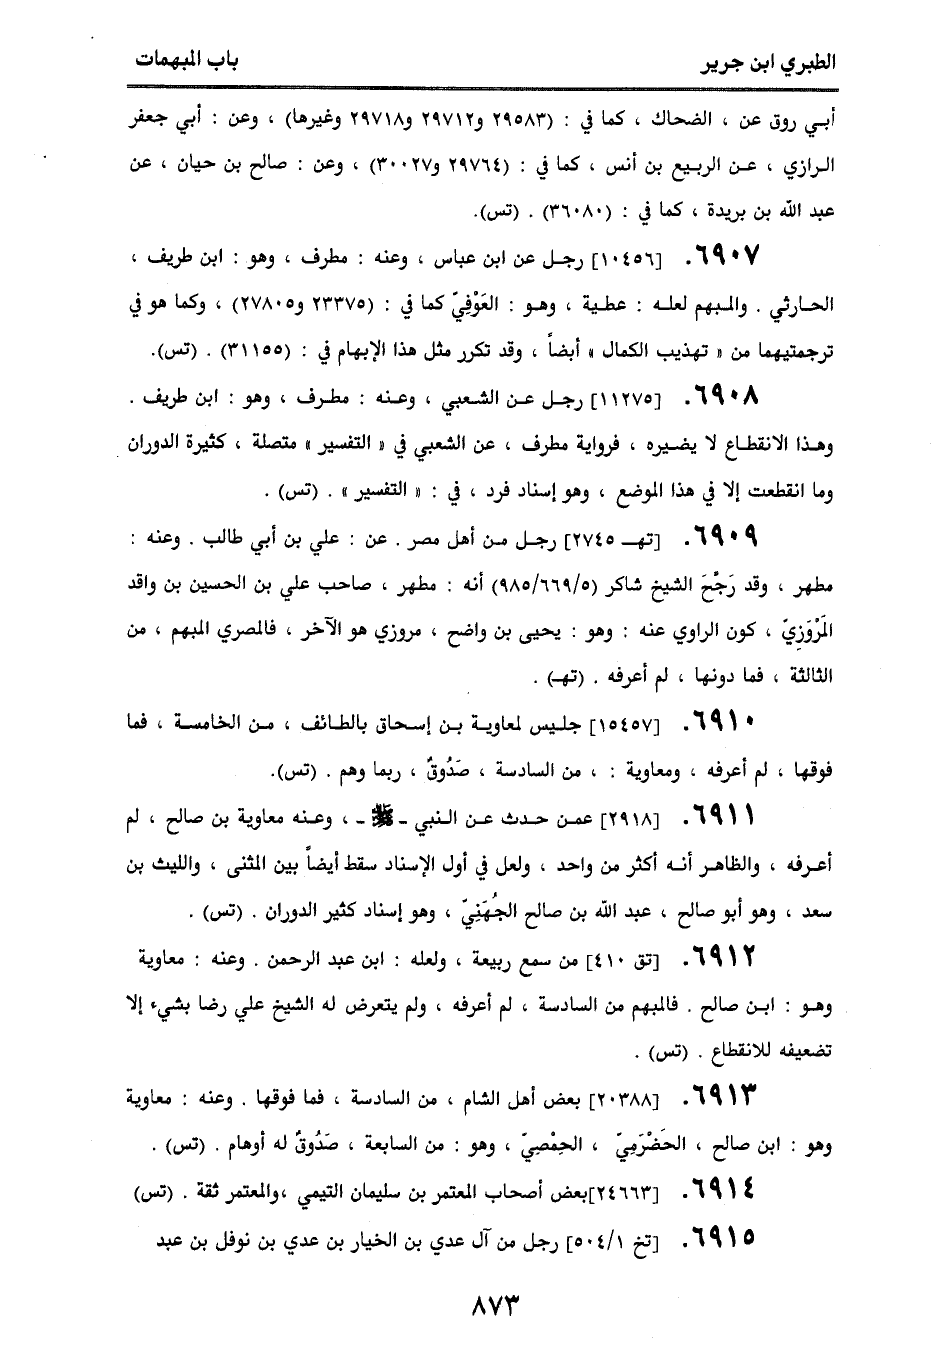 الطبري ابن جرير
باب المبهمات
أبـي روق عن ، الضحاك ، كما في : (٢٩٥٨٣ و٢٩٧١٢ و٢٩٧١٨ وغيرها) ، وعن : أبي جعفر
الـرازي ، عـن الربيع بن أنس ، كما في : (٢٩٧٦٤ و٣٠٠٢٧) ، وعن : صالح بن حيان ، عن
عبد الله بن بريدة ، كما في : (٣٦٠٨٠) . (تس).
٦٩٠٧. [١٠٤٥٦] رجـل عن ابن عباس ، وعنه : مطرف ، وهو : ابن طريف ،
الحـارثي . والمـبهم لعلـه : عطية ، وهـو : العَوْفِيّ كما في : (٢٣٣٧٥ و٢٧٨٠٥) ، وكما هو في
ترجمتيهما من « تهذيب الكمال » أيضاً ، وقد تكرر مثل هذا الإبهام في : (٣١١٥٥) . (تس).
٦٩٠٨. [١١٢٧٥] رجـل عـن الشـعبي ، وعـنه : مطـرف ، وهو : ابن طريف .
وهـذا الانقطـاع لا يضـيره ، فرواية مطرف ، عن الشعبي في « التفسير » متصلة ، كثيرة الدوران
وما انقطعت إلا في هذا الموضع ، وهو إسناد فرد ، في : « التفسير » . (تس) .
٦٩٠٩. [تهـ ٢٧٤٥] رجـل مـن أهل مصر . عن : علي بن أبي طالب . وعنه :
مطهر ، وقد رَجَّحَ الشيخ شاكر (٩٨٥/٦٦٩/٥) أنه : مطهر ، صاحب علي بن الحسين بن واقد
المَرْوَزِيّ ، كون الراوي عنه : وهو : يحيى بن واضح ، مروزي هو الآخر ، فالمصري المبهم ، من
الثالثة ، فما دونها ، لم أعرفه . (تهـ) .
٦٩١٠. [١٥٤٥٧] جليـس لمعاويـة بـن إسـحاق بالطـائف ، مـن الخامسـة ، فما
فوقها ، لم أعرفه ، ومعاوية : ، من السادسة ، صَدُوقٌ ، ربما وهم . (تس).
٦٩١١. [٢٩١٨] عمـن حدث عـن الـنبي ـ ﷺ ـ ، وعـنه معاوية بن صالح ، لم
أعـرفه ، والظاهـر أنـه أكثر من واحد ، ولعل في أول الإسناد سقط أيضاً بين المثنى ، والليث بن
سعد ، وهو أبو صالح ، عبد الله بن صالح الجُهَنِيّ ، وهو إسناد كثير الدوران . (تس) .
٦٩١٢. [تق ٤١٠] من سمع ربيعة ، ولعله : ابن عبد الرحمن . وعنه : معاوية
وهـو : ابـن صالح . فالمبهم من السادسة ، لم أعرفه ، ولم يتعرض له الشيخ علي رضا بشيء إلا
تضعيفه للانقطاع . (تس) .
٦٩١٣. [٢٠٣٨٨] بعض أهل الشام ، من السادسة ، فما فوقها . وعنه : معاوية
وهو : ابن صالح ، الحَضْرَمِيّ ، الحِمْصِيّ ، وهو : من السابعة ، صَدُوقٌ له أوهام . (تس) .
٦٩١٤. [٢٤٦٦٣]بعض أصحاب المعتمر بن سليمان التيمي ،والمعتمر ثقة . (تس)
٦٩١٥. [تخ ٥٠٤/١] رجل من آل عدي بن الخيار بن عدي بن نوفل بن عبد
٨٧٣